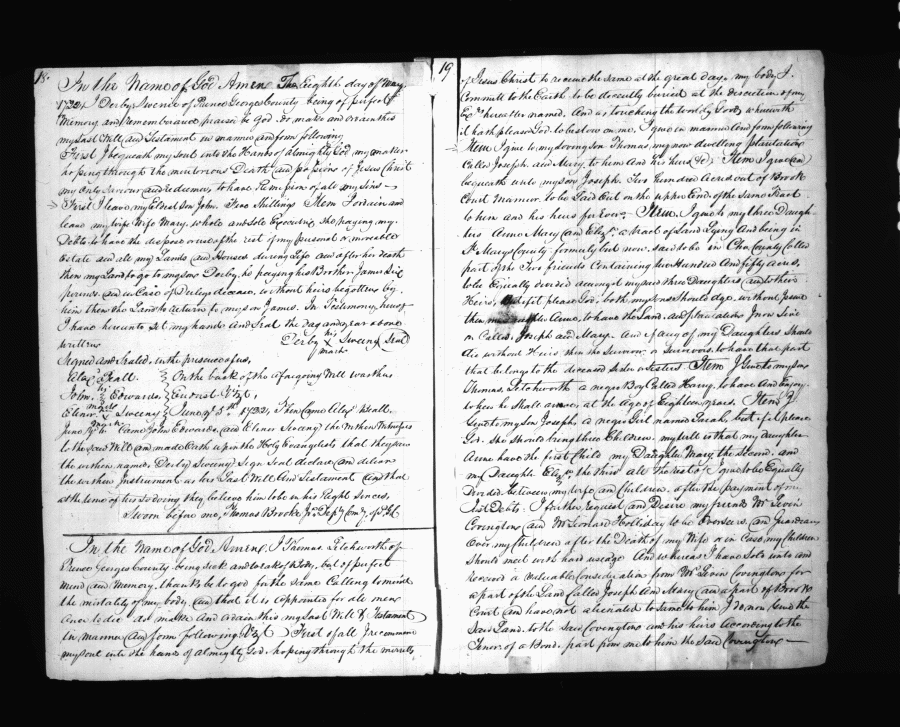 18.
In the Name of God Amen. The Eighth day of May.
1732, I Derby Swense of Prince Georges County being of perfect
Memory and remembrance praise be God. do make and ordain this
my Last Will and Testament in manner and form following
First I bequeath my Soul into the Hands of almighty God my maker
hoping through the meritorious Death and passion of Jesus Christ
my Only Saviour and Redeemer, to have Remission of all my Sins
First I leave my Eldest Son John. Five Shillings Item I ordain and
leave my wife Mary, whole and Sole Executrix She paying my
Debts to have the dispose of the rest of my personal or moveable
Estate and all my Lands and Houses during Life and after her death
then my Land to go to my Son Derby, he paying his Brother James Six
pounds and in Case of Derbys decease, without heirs begotten by
him then the Land to return to my Son James. In Testimony hereof
I have hereunto Set my hand And Seal the Day and year above
written
Derby his X mark Sweeny Seal
Signed and Sealed, in the presence of us,
Alexr Beall.
John his Edwards
Elenor mark Sweeny
On the back of the aforegoing Will was thus
Endorst Vizt,
June ye 5th 1732, Then Came Alexr Beall,
Came John Edwards, and Elinor Sweeny the Within Witnesses
to the said Will and made Oath upon the Holy Evangelists that they saw
the within named Derby Sweeny Sign Seal declare and deliver
the within Instrument as his Last Will And Testament And that
at the time of his so doing they believe him to be in his Right Sences,
Sworn before me, Thomas Brooke Jr Depy Comy of P. G.
In the Name of God Amen. I Thomas Letchworth of
Prince Georges County being Sick and weak of Body, but of perfect
Mind and Memory, thanks be to god for the Same Calling to mind
the mortality of my body and that it is appointed for all men
Once to die do make And Ordain this my Last Will & Testament
in Manner And form following Vizt First of all I recommend
my Soul into the hands of almighty God, hoping through the merrits
19
of Jesus Christ to receive the same at the great day, my body I
Committ to the Earth to be decently buried at the discretion of my
Exrs hereafter named. And as touching the worldly Goods wherewith
it hath pleased God to bestow on me, I give in manner And form following
Item I give to my loving Son Thomas, my now dwelling plantation
Called Joseph and Mary, to him And his heirs &c. Item I give and
bequeath unto my Son Joseph. Two hundred Acres out of Brook
Court Mannor, to be Laid Out on the upper End of the Same Tract
to him and his heirs for Ever. Item. I give to my three Daugh-
ters Anne Mary and Elizth a tract of Land Lying And being in
St Marys County formerly but now said to be in Cha. County Called
part of the Two friends Containing two Hundred And fifty Acres,
to be Equally divided amongst my said three Daughters and their
Heirs, if it please God, both my Sons Should dye, without Issue
then my Daughter Anne, to have the Land and plantation I now live
on Called Joseph and Mary. And if any of my Daughters should
die without Heirs then the Survivor or Survivors, to have that part
that belongs to the deceased Sister or Sisters. Item I Give to my Son
Thomas Letchworth a negro Boy Called Harry, to have And Enjoy
when he shall arive, at the Age of Eighteen years. Item I
Give to my Son Joseph, a negro Girl named Sarah, but if it please
God. She Should bring three Children. my will is that my daughter
Anne have the first Child my Daughter Mary the Second, and
my Daughter Elizth the third all the rest I give to be Equally
Divided between my wife and Children. after the payment of my
Just Debts. I further request and Desire my friends Mr Levin
Covington and Mr Leonard Holliday to be Overseers and Guardians
Over my Children after the Death of my Wife or in Case my Children
Should meet with hard useage And whereas I have Sold unto and
received a valuable Consideration from Mr Levin Covington for
a part of the Land Called Joseph And Mary and a part of Brook
Court and have not alienated the Same to him I do now give the
Said Land to the Said Covington and his heirs According to the
Tenor of a Bond. past from me to him the Said Covington